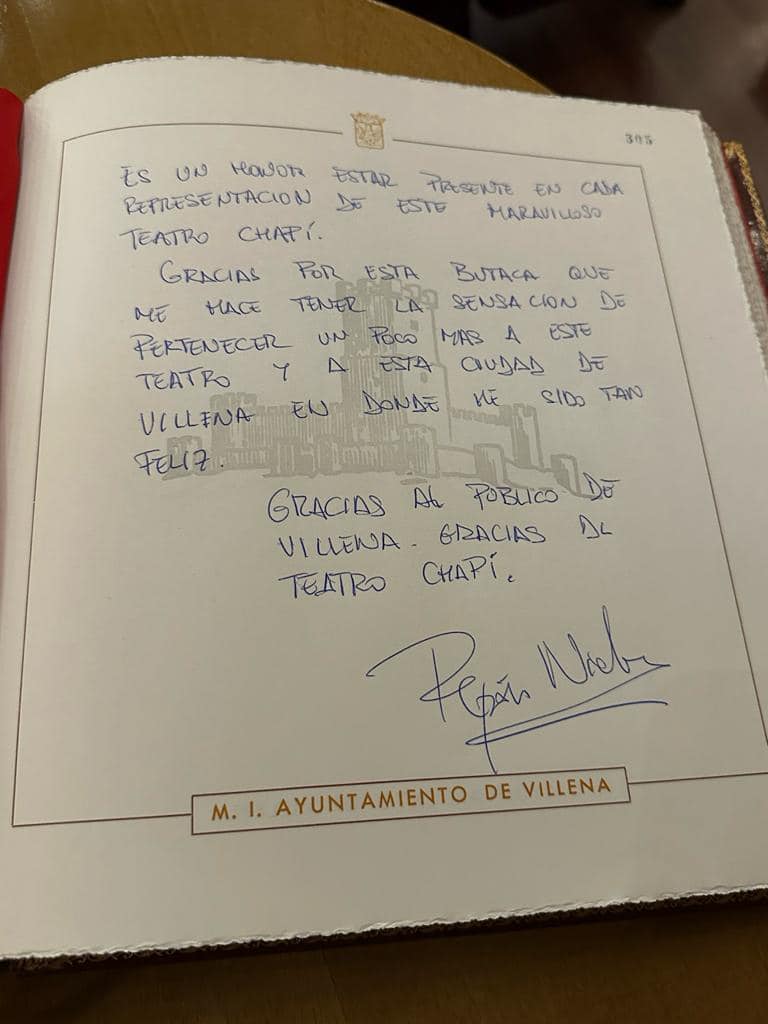 305
ES UN HONOR ESTAR PRESENTE EN CADA
REPRESENTACION DE ESTE MARAVILLOSO
TEATRO CHAPÍ.
GRACIAS POR ESTA BUTACA QUE
ME HACE TENER LA SENSACION DE
PERTENECER UN POCO MAS A ESTE
TEATRO Y A ESTA CIUDAD DE
VILLENA EN DONDE HE SIDO TAN
FELIZ.
GRACIAS AL PÚBLICO DE
VILLENA. GRACIAS AL
TEATRO CHAPÍ.
Pepón Nieto
M. I. AYUNTAMIENTO DE VILLENA